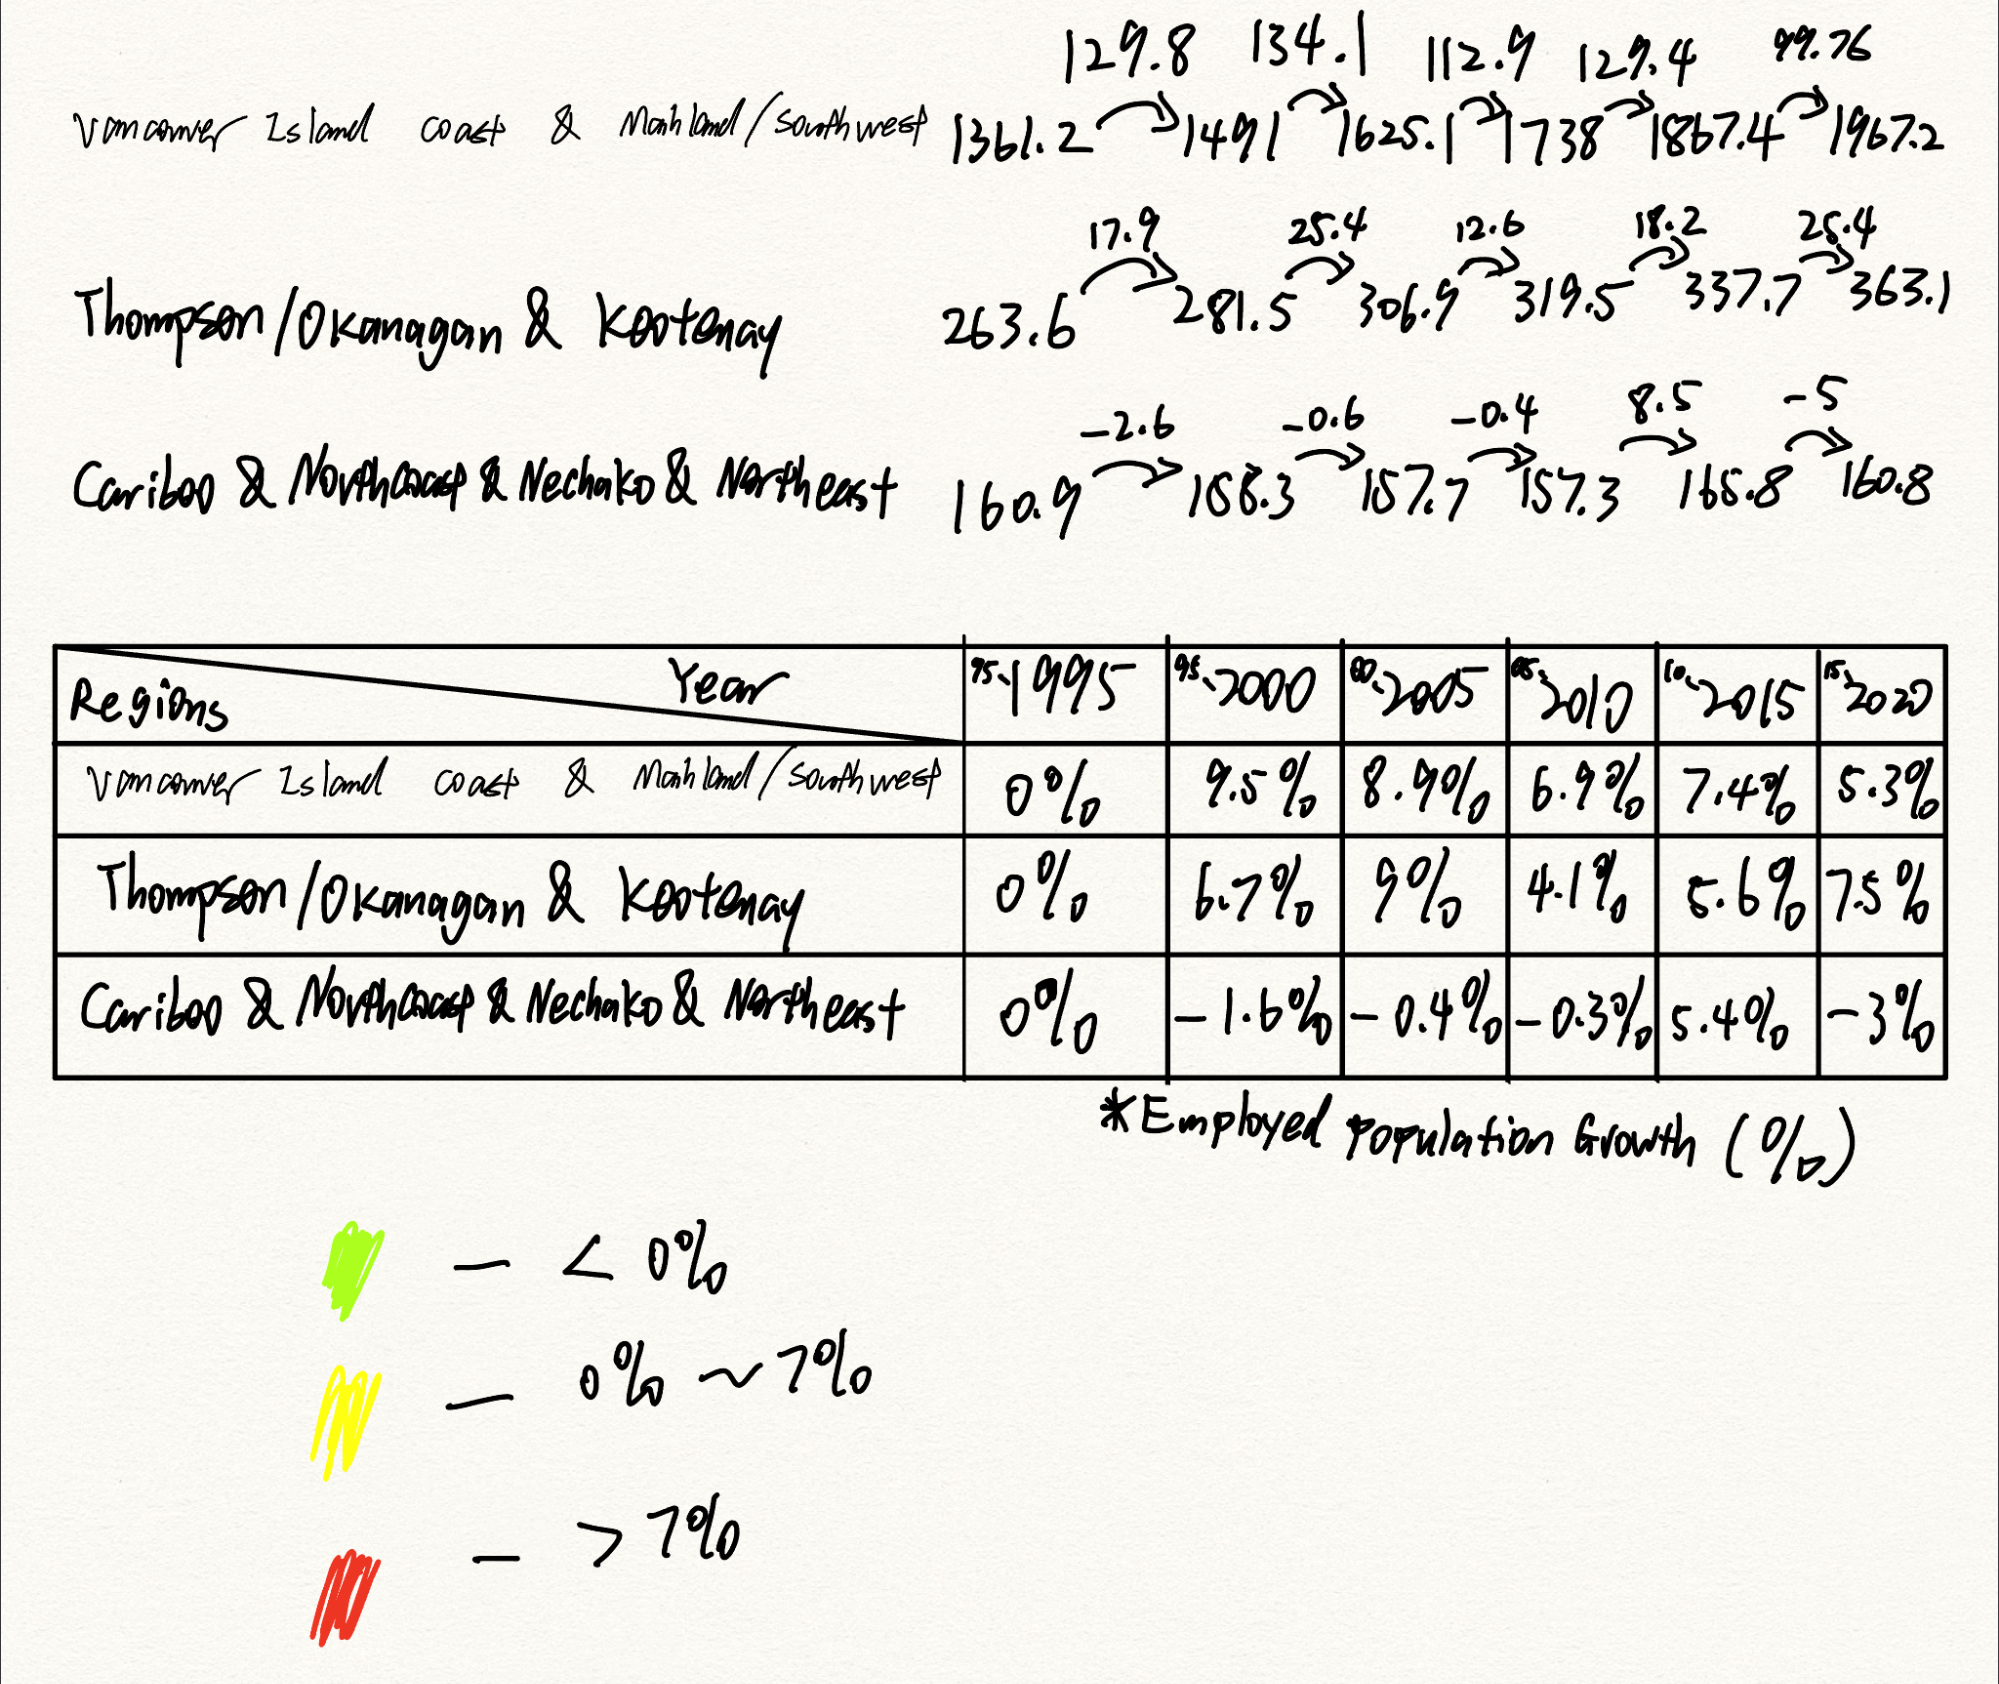 129.8 134.1 112.9 129.4 99.76
Vancouver Island coast & Mainland/Southwest 1361.2 1491 1625.1 1738 1867.4 1967.2
17.9 25.4 12.6 18.2 25.4
Thompson/Okanagan & Kootenay 263.6 281.5 306.9 319.5 337.7 363.1
-2.6 -0.6 -0.4 8.5 -5
Cariboo & Northcoast & Nechako & Northeast 160.9 158.3 157.7 157.3 165.8 160.8
Regions Year 95~1995 95~2000 00~2005 05~2010 10~2015 15~2020
Vancouver Island coast & Mainland/Southwest 0% 9.5% 8.9% 6.9% 7.4% 5.3%
Thompson/Okanagan & Kootenay 0% 6.7% 9% 4.1% 5.6% 7.5%
Cariboo & Northcoast & Nechako & Northeast 0% -1.6% -0.4% -0.3% 5.4% -3%
*Employed Population Growth (%)
- < 0%
- 0% ~ 7%
- > 7%